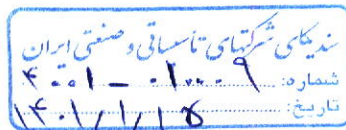 سندیکای شرکتهای تأسیساتی و صنعتی ایران
شماره: ۴۰۰۱ - ۰۱۰۰۰۹
تاریخ: ۱۴۰۱/۱/۱۵